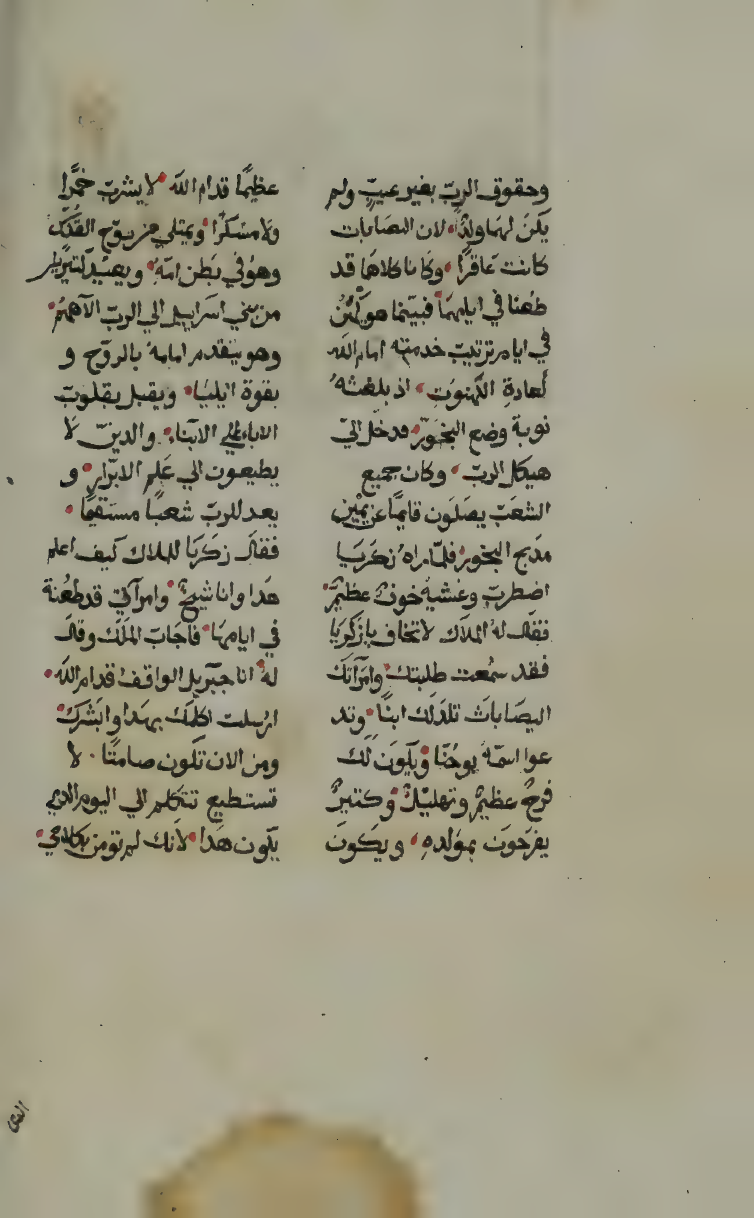 وحقوق الرب بغير عيب ولم
يكن لهما ولدًا لان اليصابات
كانت عاقرًا وكانا كلاهما قد
طعنا في ايامهما فبينما هو يكهن
في ايام ترتيب خدمته امام الله
لعادة الكهنوت اذ بلغته
نوبة وضع البخور فدخل الي
هيكل الرب وكان جميع
الشعب يصلون قايمًا عن يمين
مذبح البخور فلما راه زكريا
اضطرب وغشيه خوف عظيم
فقال له الملاك لا تخاف يا زكريا
فقد سمعت طلبتك وامراتك
اليصابات تلد لك ابنًا وتد
عوا اسمه يوحنا ويكون لك
فرح عظيم وتهليل وكتير
يفرحون بمولده ويكون
عظيمًا قدام الله لا يشرب خمرًا
ولا مسكرًا ويمتلي من روح القدس
وهو في بطن امه ويعيد كتير
من بني اسراييل الي الرب الاههم
وهو يتقدم امامه بالروح و
بقوة ايليا ويقبل بقلوب
الاباء علي الابناء والدين لا
يطيعون الي علم الابرار و
يعد للرب شعبا مستقيمًا
فقال زكريا للملاك كيف اعلم
هدا وانا شيخ وامراتي قد طعنة
في ايامها فاجاب الملك وقال
له انا جبريل الواقف قدام الله
ارسلت اكلمك بهدا وابشرك
ومن الان تكون صامتًا لا
تستطيع تتكلم الي اليوم الدي
يكون هدا لانك لم تومن بكلامي
الدي